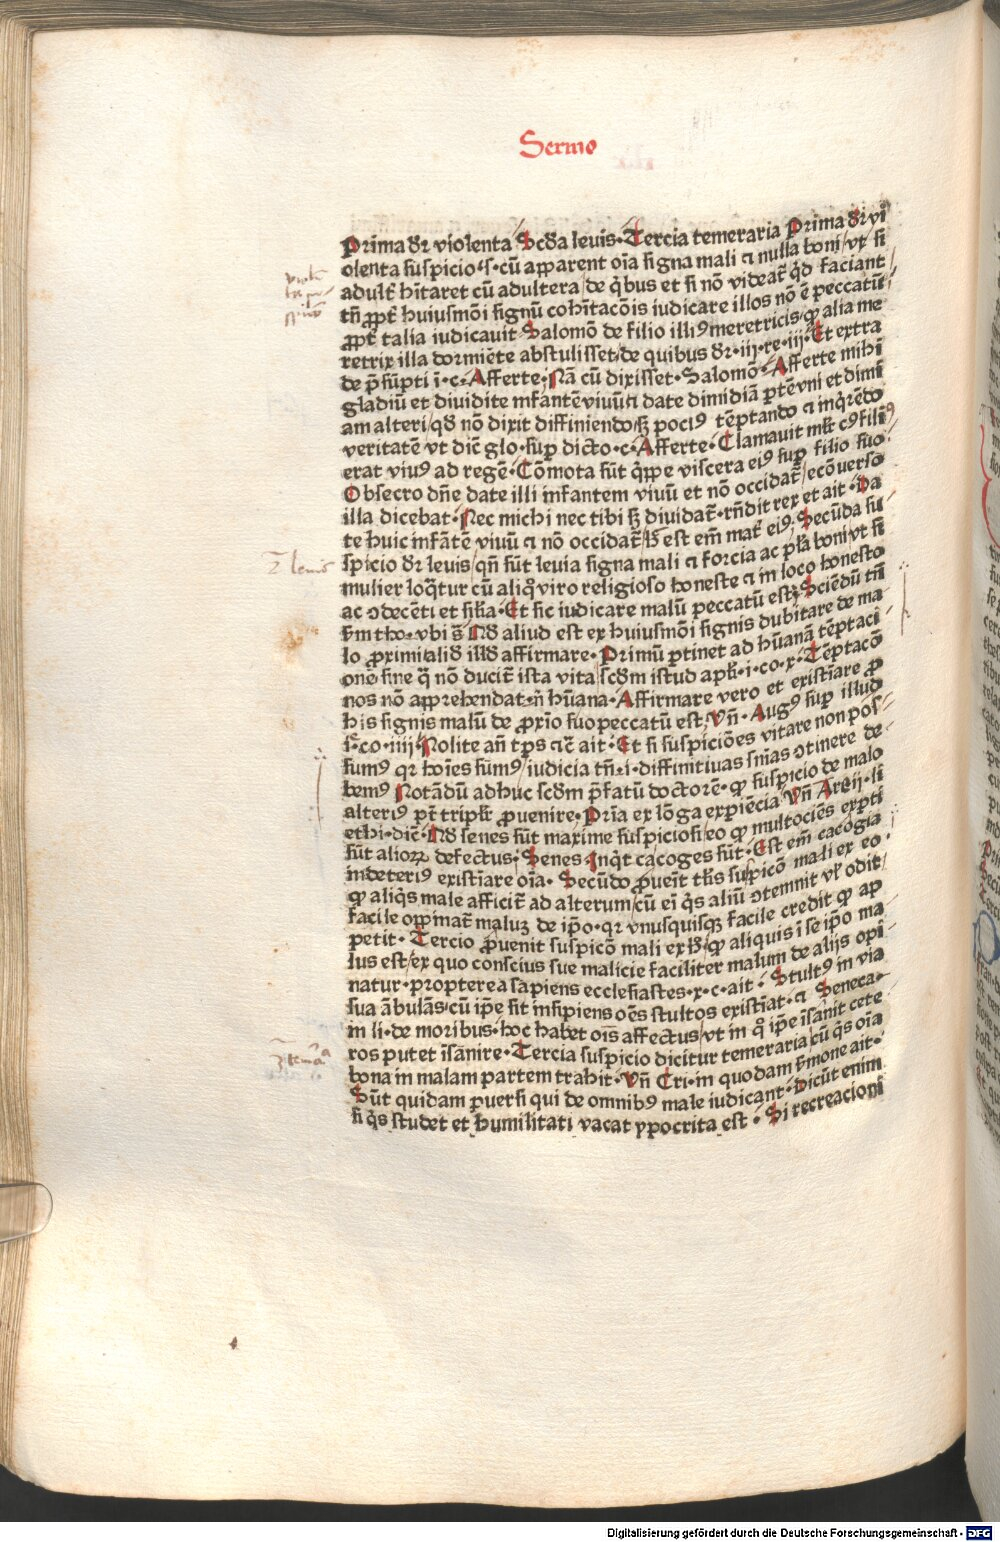 Sermo
Prima dr̄ violenta Scd̄a leuis· Tercia temeraria Prima dr̄ vi
olenta suspicio·s· cū apparent oīa signa mali ⁊ nulla boni/ vt̄ si
adult̄ hītaret cū adultera/ de qͥbus et si nō videat̄ qd̄ faciant
tn̄ ꝓpt̄ huiusmōi signū cohītacōis iudicare illos nō ē peccatū
ꝓpt̄ talia iudicauit Salomō de filio illiꝰ meretricis/ ꝙ alia me
retrix illa dormiēte abstulisset/ de quibus dr̄·iij·re·iij· Et extra
de p̄sūpti ī·c· Afferte· Nā cū dixisset· Salomō· Afferte mihi
gladiū et diuidite infantē viuū ⁊ date dimidiā ꝑtē vni et dimi
am alteri/ qd̄ nō dixit diffiniendo/ sꝫ pociꝰ tēptando ⁊ inqͥrēdo
veritatē vt dic̄ glo· sup̄ dicto·c· Afferte· Clamauit mlr̄ cꝰ filiꝰ
erat viuꝰ ad regē· Cōmota sūt qͥppe viscera eiꝰ sup̄ filio suo
Obsecro dn̄e date illi infantem viuū et nō occidat̄/ ecōuerso
illa dicebat· Nec michi nec tibi sꝫ diuidat̄· rn̄dit rex et ait· Da
te huic infātē viuū ⁊ nō occidat̄/ h̄ est em̄ mat̄ eiꝰ· Secūda su
spicio dr̄ leuis/ qn̄ sūt leuia signa mali ⁊ forcia ac pl̄a boni/ vt si
mulier loqͥtur cū aliqͦ viro religioso honeste ⁊ in loco honesto
ac ↄdecēti et sīlia· Et sic iudicare malū peccatū est· Sciēdū tn̄
sm̄ tho· vbi s̄ Nō aliud est ex huiusmōi signis dubitare de ma
lo ꝓximi/ aliō illd̄ affirmare· Primū ꝑtinet ad hūanā tēptaci
onē sine qͣ nō ducit̄ ista vita/ scd̄m istud apl̄i·i·co·x· Tēptacō
nos nō apprehendat·n̄ hūana· Affirmare vero et existīare ꝓ
his signis malū de ꝓxīo suo peccatū est· Vn̄· Augꝰ sup̄ illud
i·co·iiij· Nolite an̄ tp̄s ⁊c̄ ait· Et si suspiciōes vitare non pos
sumꝰ qr hoīes sumꝰ/ iudicia tn̄·i· diffinitiuas sn̄ias ↄtinere de
bemꝰ Notādū adhuc scd̄m p̄fatū doctorē· ꝙ suspicio de malo
alteriꝰ pt̄ triplr̄ ꝓuenire· Pria ex lōga expiēcia Vn̄ Ar·ij·li
ethi· dic̄· Nō senes sūt maxime suspiciosi/ eo ꝙ multociēs exp̄ti
sūt alioꝝ defectus· Senes Inqͥt cacoges sūt· Est em̄ cacogia
indeteriꝰ existīare oīa· Secūdo ꝓueīt tl̄is suspicō mali ex eo
ꝙ aliqͥs male afficit̄ ad alterum/ cū eī qͥs aliū ↄtemnit vl̄ odit
facile oppinat̄ maluꝫ de ip̄o· qr vnusquisqꝫ facile credit ꝙ ap
petit· Tercio ꝓuenit suspicō mali ex h̄· ꝙ aliquis ī se ip̄o ma
lus est/ ex quo conscius sue malicie faciliter malum de alijs opi
natur· propterea sapiens ecclesiastes·x·c·ait· Stultꝰ in via
sua ābulās/ cū ip̄e sit insipiens oēs stultos existīat· ⁊ Seneca·
in li· de moribus· hoc habet oīs affectus/ vt in qͦ ip̄e īsanit cete
ros putet īsanire· Tercia suspicio dicitur temeraria/ cū qͥs oīa
bona in malam partem trahit· Vn̄ Cri·in quodam s̄mone ait·
Sūt quidam ꝑuersi qui de omnibꝰ male iudicant· Dicūt enim
si qͥs studet et humilitati vacat ypocrita est· Si recreacioni
2ͣ leuis
3ͣ temͣria
Digitalisierung gefördert durch die Deutsche Forschungsgemeinschaft - DFG